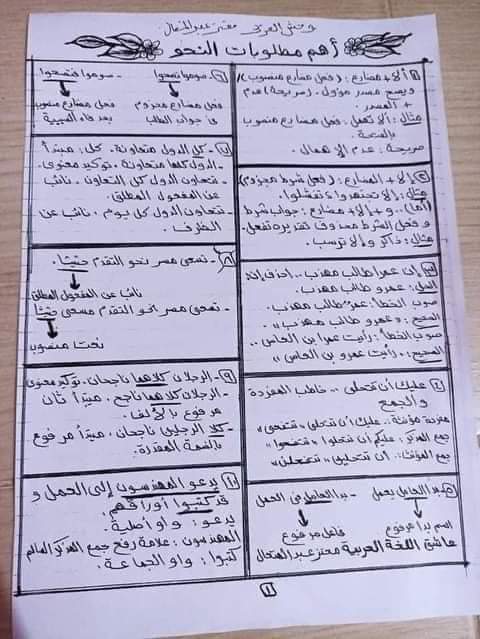 وحش العربي معتز عبدالمتعال
أهم مطلوبات النحو
١) ألا + مضارع : (فعل مضارع منصوب)
ويصح مصدر مؤول. (صريحه) عدم
+ المصدر.
مثال: ألا تهمل : فعل مضارع منصوب
بالفتحة.
صريحة : عدم الإهمال.
٢) إلا + المضارع : (فعل شرط مجزوم)
مثال: إلا تجتهدوا تفشلوا.
أما .. و + إلا + مضارع : جواب شرط
وفعل الشرط محذوف تقديره تفعل.
مثال: ذاكر وإلا ترسب.
٣) إن عمرا طالب مهذب .. احذف إن
صوب الخطأ: عمر طالب مهذب.
الصحيح : «عمرو طالب مهذب».
صوب الخطأ: رأيت عمرا بن العاص..
الصحيح: «رأيت عمرو بن العاص»
٤) عليك أن تتحلى .. خاطب المفردة
والجمع
مفردة مؤنثة.. عليك أن تتحلي
جمع المذكر: عليكم أن تتحلوا
جمع المؤنث: أن تتحلين
٥) بدأ العامل يعمل - بدأ العامل في العمل
اسم بدأ مرفوع فاعل مرفوع
عاشق اللغة العربية معتز عبدالمتعال
٦) صوموا تصحوا - صوموا فتصحوا
فعل مضارع مجزوم فعل مضارع منصوب
في جواب الطلب بعد فاء السببية
٧) كل الدول متعاونة. كل: مبتدأ
- الدول كلها متعاونة. توكيد معنوي.
- تتعاون الدول كل التعاون. نائب
عن المفعول المطلق.
- تتعاون الدول كل يوم. نائب عن
الظرف.
٨) - تسعى مصر نحو التقدم حثيثا.
نائب عن المفعول المطلق
- تسعى مصر نحو التقدم مسعى حثيثا
نعت منصوب
٩) - الرجلان كلاهما ناجحان. توكيد معنوي
- الرجلان كلاهما ناجح. مبتدأ ثان
مرفوع بالألف.
- كلا الرجلين ناجحان. مبتدأ مرفوع
بالضمة المقدرة.
١٠) يدعو المهندسون إلى العمل و
قد كتبوا أوراقهم.
يدعو : واو أصلية.
المهندسون : علامة رفع جمع المذكر السالم
كتبوا : واو الجماعة.
١